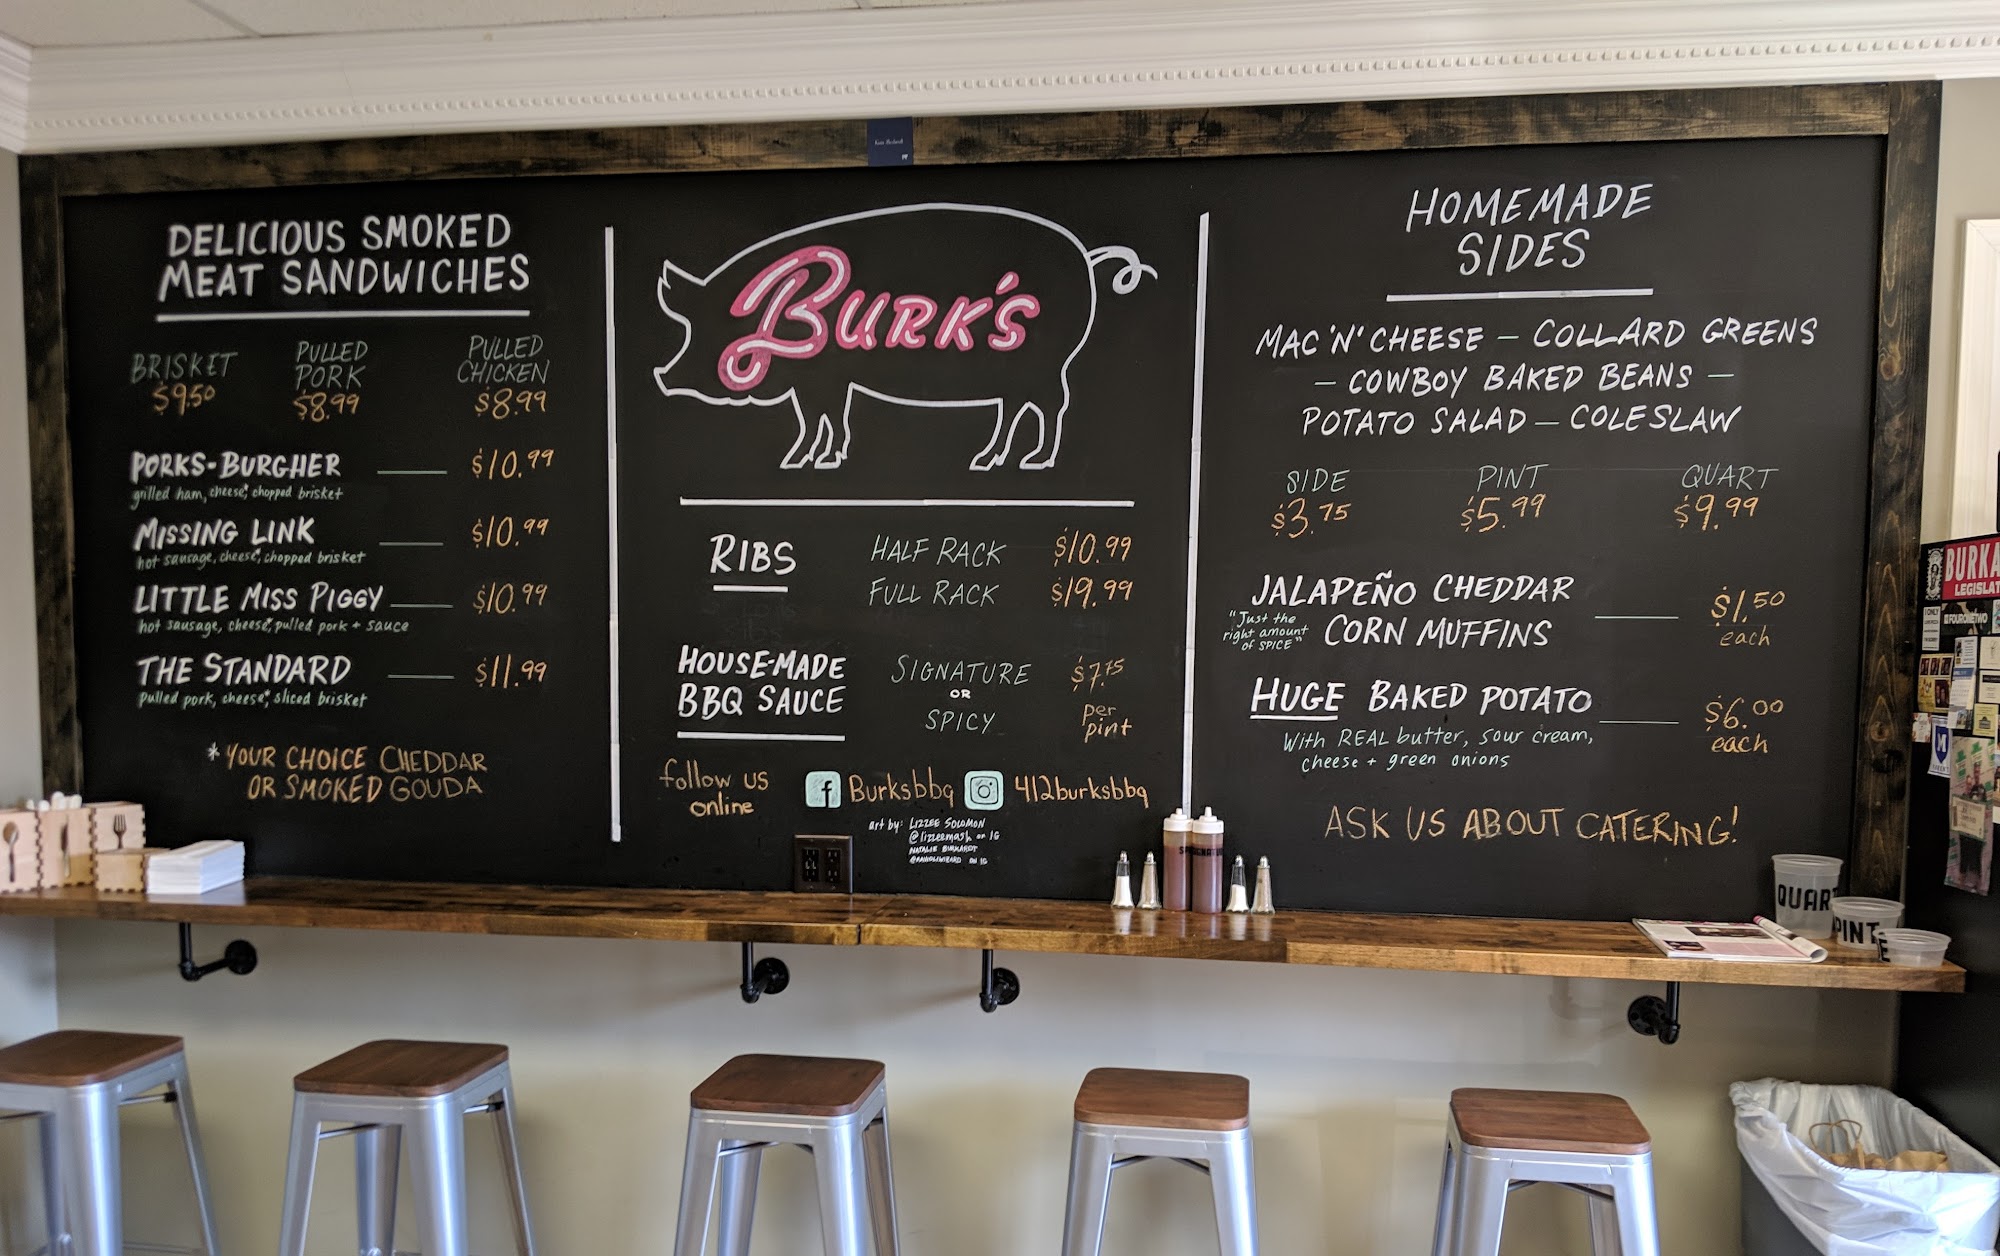 DELICIOUS SMOKED
MEAT SANDWICHES
BRISKET
$9.50
PULLED
PORK
$8.99
PULLED
CHICKEN
$8.99
PORKS-BURGHER $10.99
grilled ham, cheese,* chopped brisket
MISSING LINK $10.99
hot sausage, cheese,* chopped brisket
LITTLE MISS PIGGY $10.99
hot sausage, cheese,* pulled pork + sauce
THE STANDARD $11.99
pulled pork, cheese,* sliced brisket
* YOUR CHOICE CHEDDAR
OR SMOKED GOUDA
BURK'S
RIBS
HALF RACK $10.99
FULL RACK $19.99
HOUSE-MADE
BBQ SAUCE
SIGNATURE
OR
SPICY
$7.75
per
pint
follow us
online
f Burksbbq 412burksbbq
art by: LIZZEE SOLOMON
@lizzeemash on IG
NATALIE BURKARDT
ON IG
HOMEMADE
SIDES
MAC 'N' CHEESE – COLLARD GREENS
– COWBOY BAKED BEANS –
POTATO SALAD – COLESLAW
SIDE PINT QUART
$3.75 $5.99 $9.99
JALAPEÑO CHEDDAR
CORN MUFFINS
"Just the
right amount
of SPICE"
$1.50
each
HUGE BAKED POTATO
With REAL butter, sour cream,
cheese + green onions
$6.00
each
ASK US ABOUT CATERING!
QUAR
PINT
E
BURKA
LEGISLAT
FOURONETWO
M